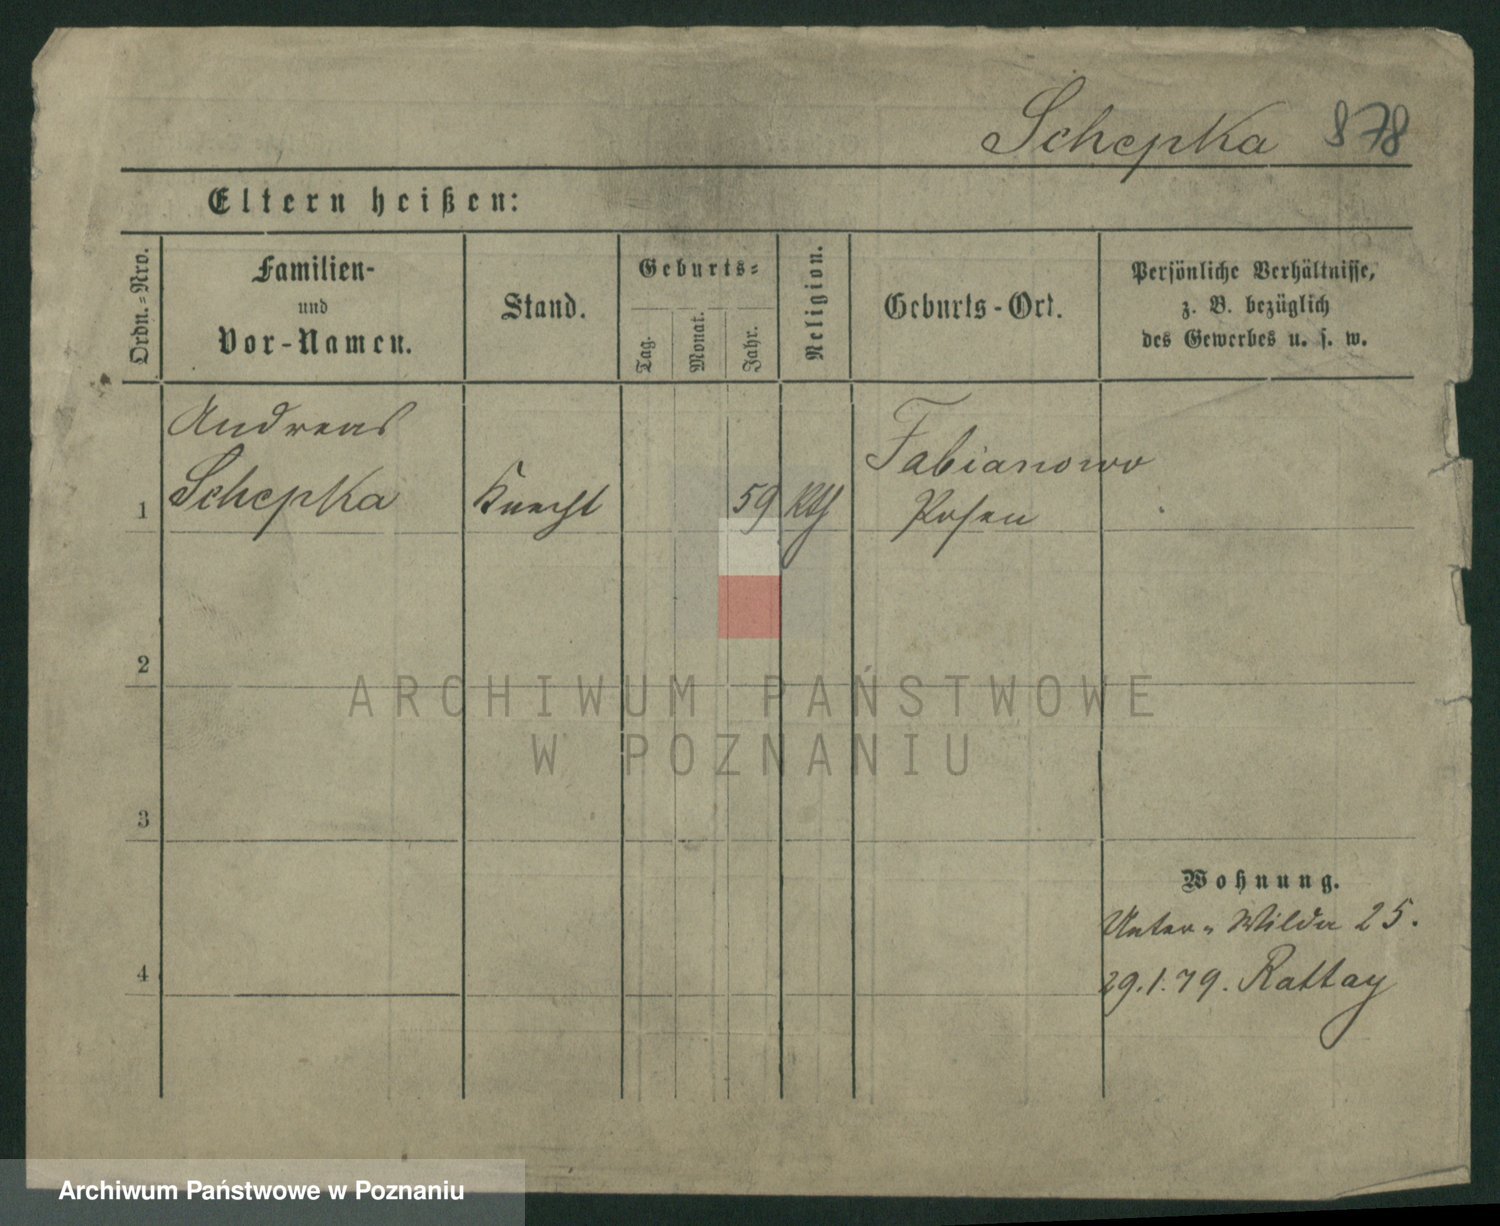 Schepka 878
Eltern heißen:
Ordn.=Nro.
Familien-
und
Vor-Namen.
Stand.
Geburts=
Tag.
Monat.
Jahr.
Religion.
Geburts-Ort.
Persönliche Verhältnisse,
z. B. bezüglich
des Gewerbes u. s. w.
Andreas
Schepka
1
Knecht
59
Kth
Fabianowo
Posen
2
3
4
Wohnung.
Unter= Wilda 25.
29.1.79. Rattay
ARCHIWUM PAŃSTWOWE
W POZNANIU
Archiwum Państwowe w Poznaniu